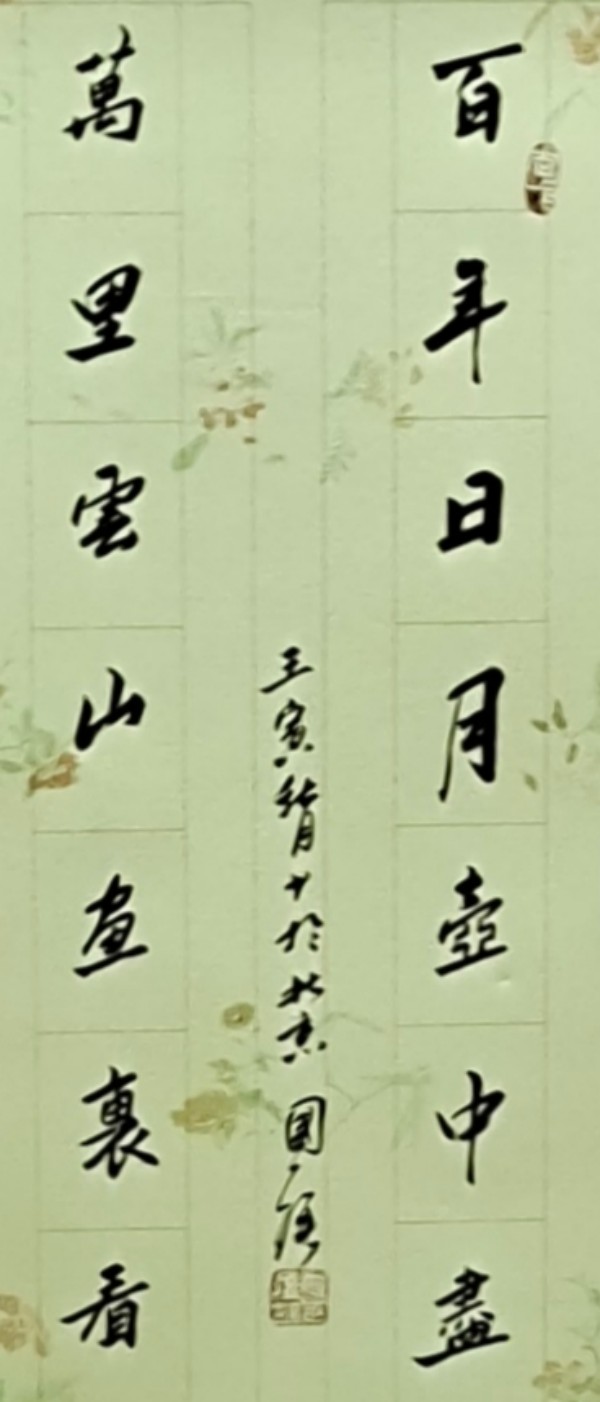 百年日月壺中盡
萬里雲山畫裏看
壬寅秋月於北京國